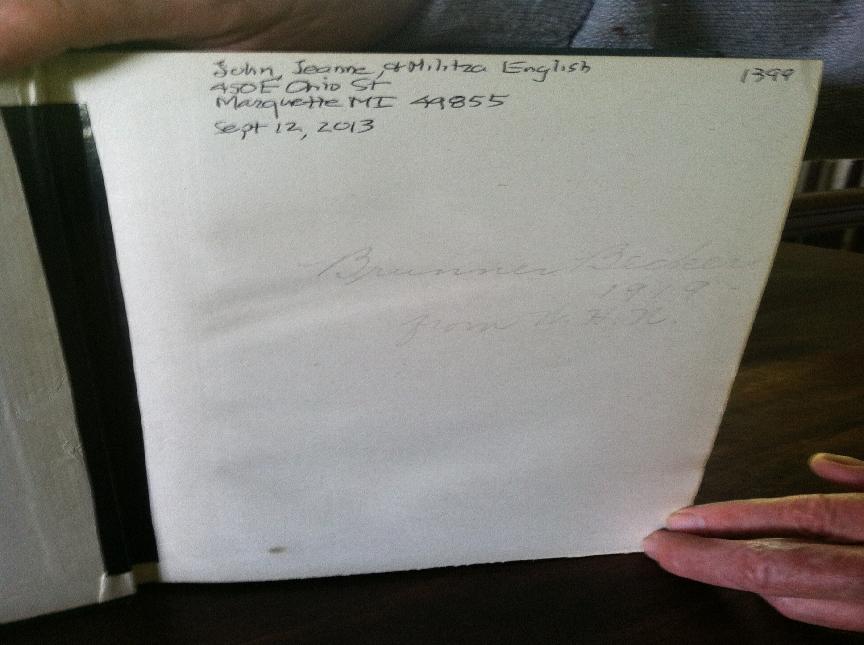 John, Jeanne, & Militza English
1399
450 E Ohio St
Marquette MI 49855
Sept 12, 2013
Brunner Becker
1919
from W. H. N.